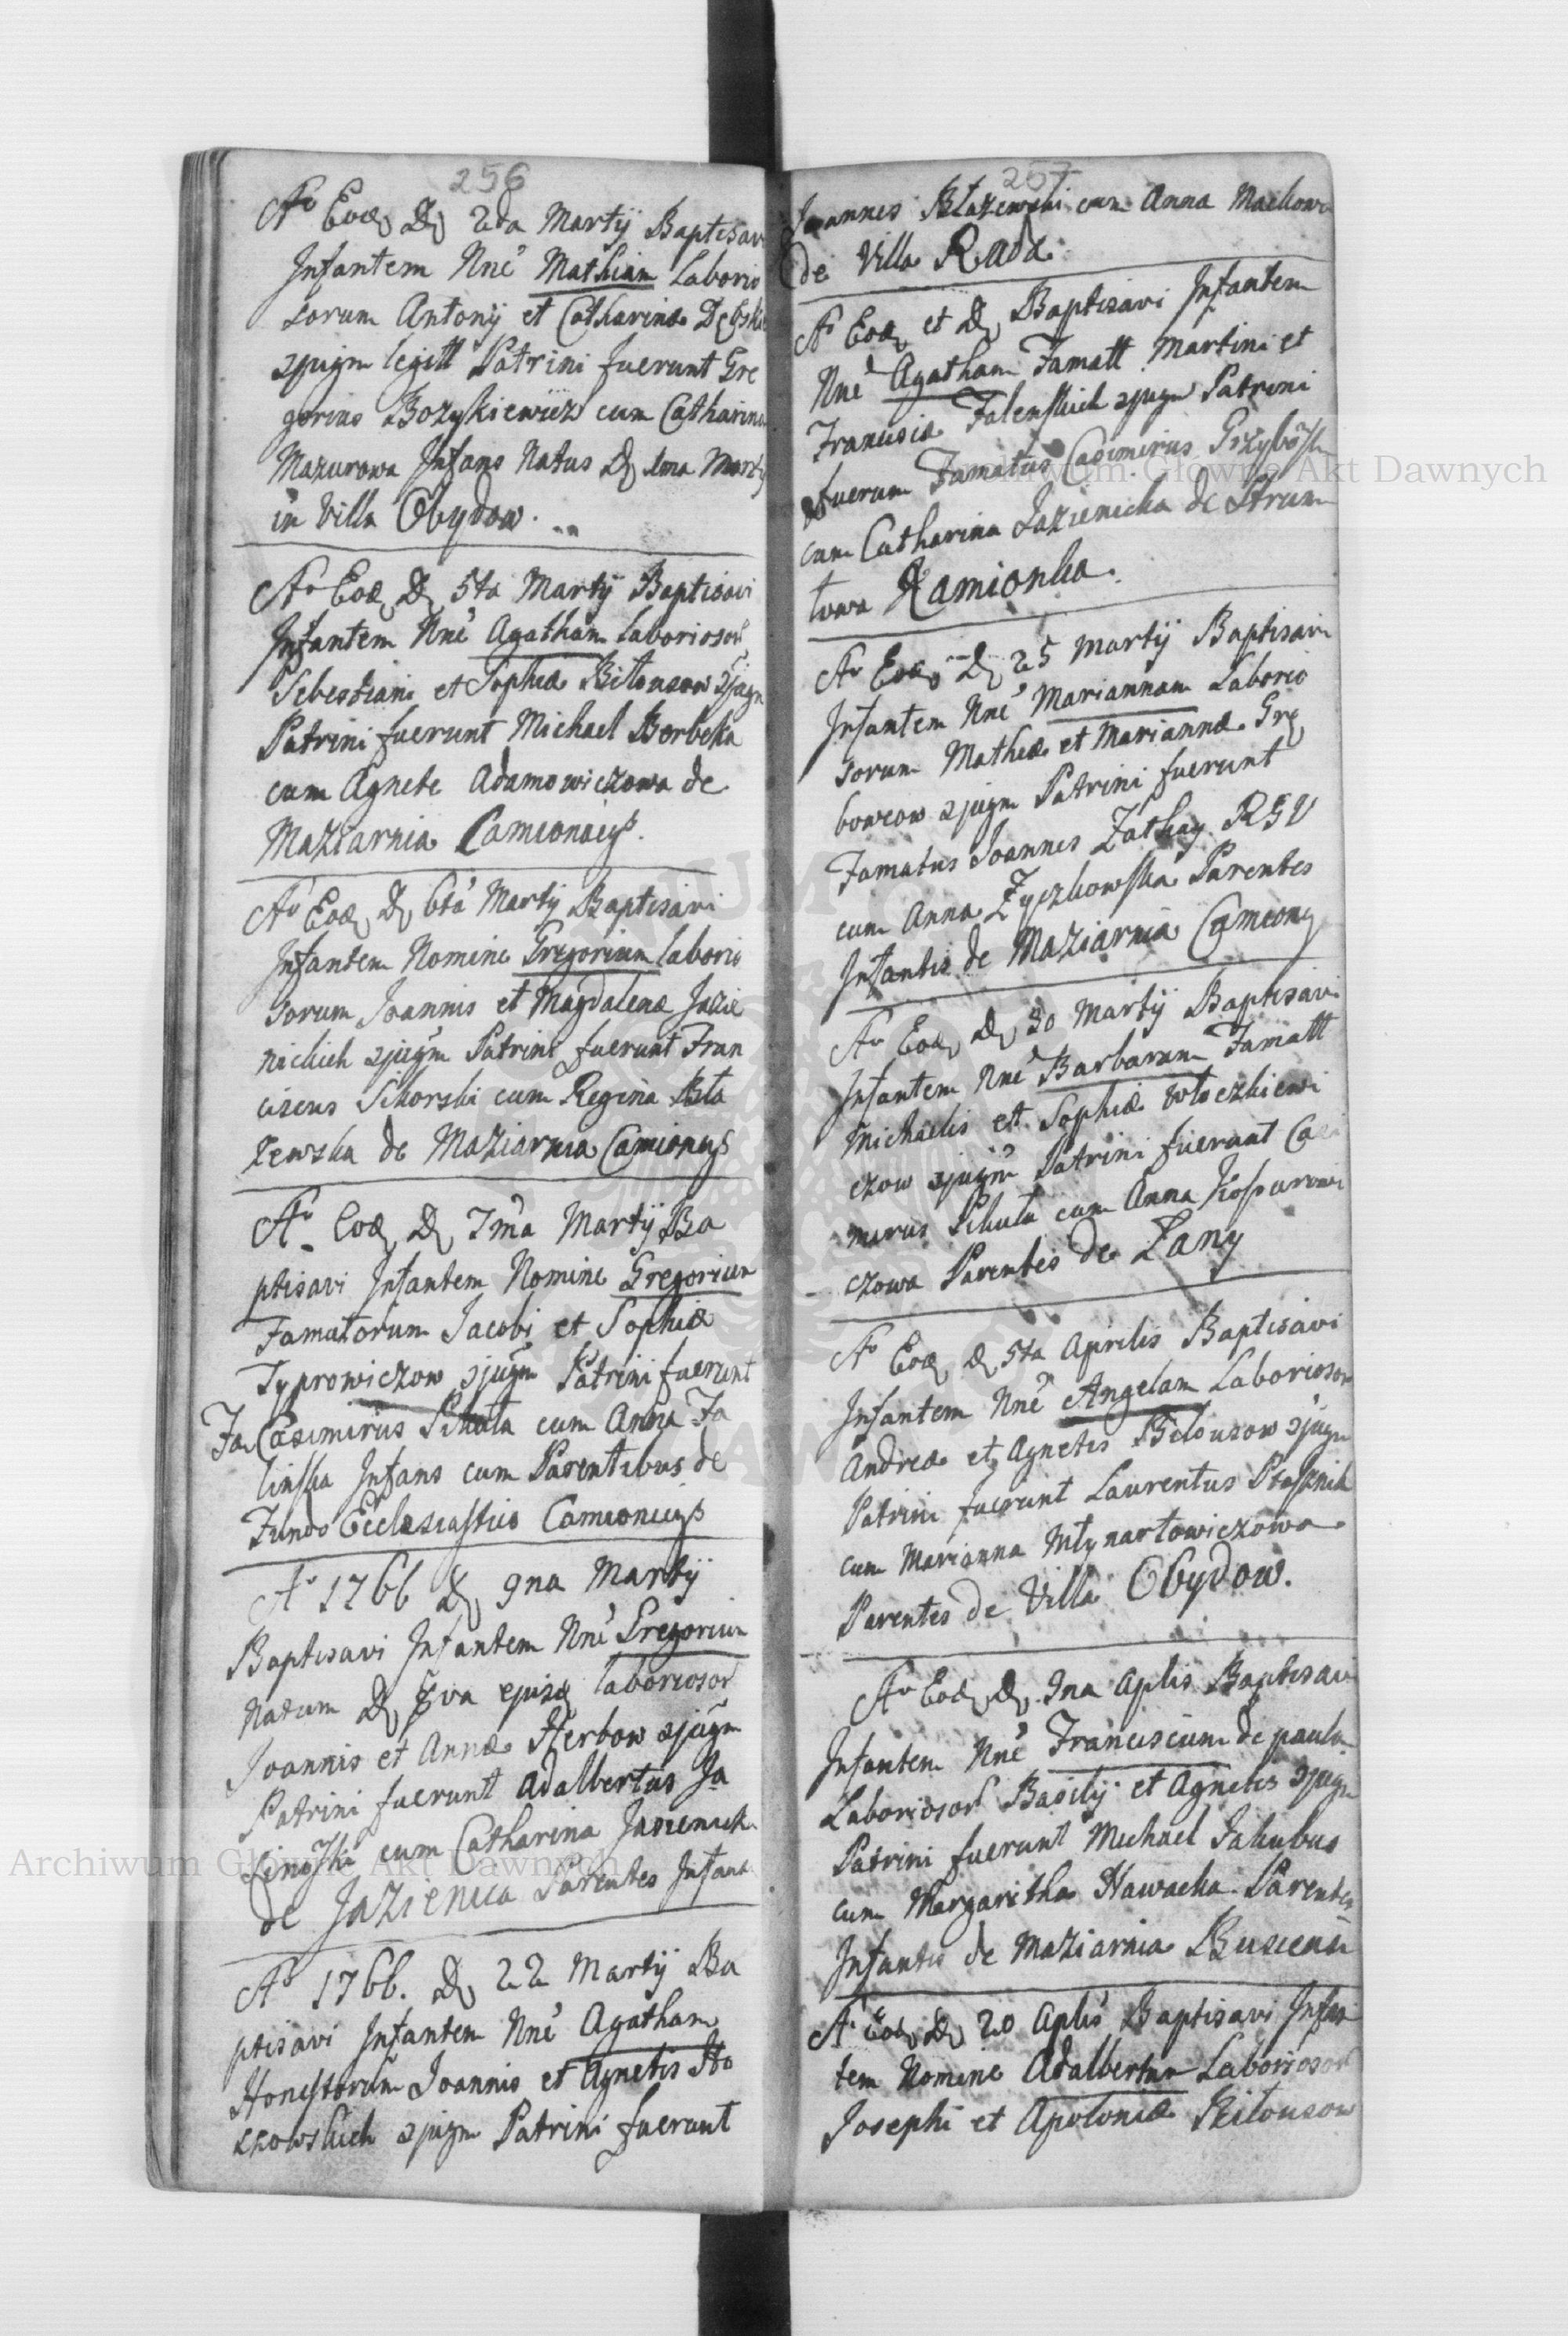 256
Ao Eod D 2da Martij Baptisavi
Infantem Nne Mathiam Laborio
sorum Antonij et Catharinæ Dębski
cjugm legitt Patrini fuerunt Gre
gorius Bozykiewicz cum Catharina
Mazurowa Infans Natus D 1ma Martij
in Villa Obydow.
Ao Eod D 5ta Martij Baptisavi
Infantem Nne Agatham Laboriosor
Sebestiani et Sophiæ Bitousow cjugm
Patrini fuerunt Michael Berbeka
cum Agnete Adamowiczowa de
Maziarnia Camionacys.
Ao Eod D 6ta Martij Baptisavi
Infantem Nomine Gregorium Laborio
sorum Joannis et Magdalenæ Jazie
nickich cjugm Patrini fuerunt Fran
ciscus Sikorski cum Regina Bła
zewska de Maziarnia Camioncys
Ao Eod D 7ma Martij Ba
ptisavi Infantem Nomine Gregorium
Famatorum Jacobi et Sophiæ
Typrowiczow cjugm Patrini fuerunt
Fa Casimirus Sikuta cum Anna Ja
linska Infans cum Parentibus de
Fundo Ecclesiastico Camioncys
Ao 1766 D 9na Martij
Baptisavi Infantem Nne Gregorium
Natum D 8va ejusd laboriosor
Joannis et Annæ Herbow cjugm
Patrini fuerunt Adalbertus Ja
linski cum Catharina Jazienick
de Jazienica Parentes Infant
Ao 1766. D 22 Martij Ba
ptisavi Infantem Nne Agatham
Honestorum Joannis et Agnetis Ho
szowskich cjugm Patrini fuerunt
257
Joannes Błazewski cum Anna Mackowa
de Villa Ruda.
Ao Eod et D Baptisavi Infantem
Nne Agatham Famatt Martini et
Francisiæ Falenskich cjugm Patrini
fuerum Famatus Casimirus Grzybosk
cum Catharina Jazienicka de Strum
towa Kamionka.
Ao Eod D 25 Martij Baptisavi
Infantem Nne Mariannam Laborio
sorum Mathiæ et Mariannæ Grę
bowcow cjugm Patrini fuerunt
Famatus Joannes Zathey RGV
cum Anna Zyczkowska Parentes
Infantis de Maziarnia Camionc
Ao Eod D 30 Martij Baptisavi
Infantem Nne Barbaram Famatt
Michaelis et Sophiæ Włoczkiewi
czow cjugm Patrini fuerunt Casi
mirus Sikuta cum Anna Kosparowi
czowa Parentes de Łany
Ao Eod D 5ta Aprilis Baptisavi
Infantem Nne Angelam Laboriosor
Andreæ et Agnetis Bilousow cjugm
Patrini fuerunt Laurentus Ptasznik
cum Marianna Młynartowiczowa
Parentes de Villa Obydow.
Ao Eod D 9na Aplis Baptisavi
Infantem Nne Franciscum de paula
Laboriosor Basilij et Agnetis cjugm
Patrini fuerunt Michael Jakubus
cum Margaritha Hawacka Parentes
Infantis de Maziarnia Buscensi
Ao Eod D 20 Aplis Baptisavi Infan
tem Nomine Adalbertum Laboriosor
Josephi et Apoloniæ Bitousow
Archiwum Główne Akt Dawnych
Archiwum Główne Akt Dawnych